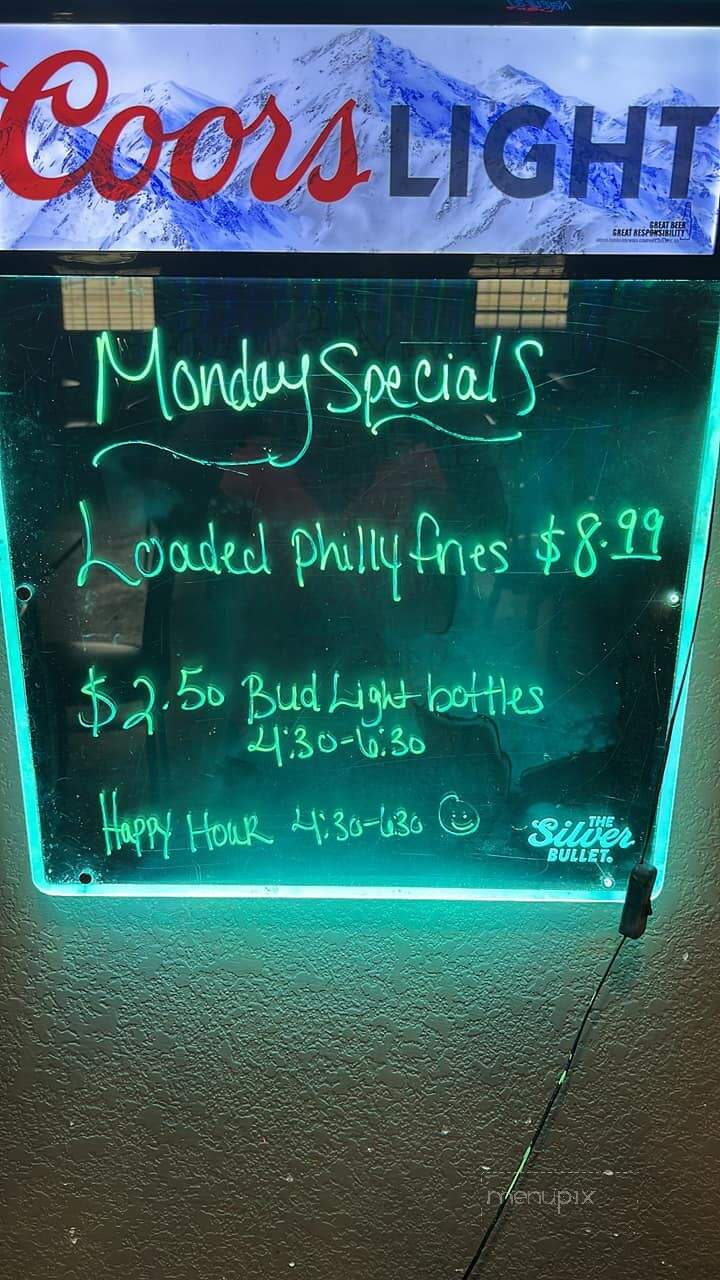 Coors LIGHT
GREAT BEER
GREAT RESPONSIBILITY
Monday Specials
Loaded Philly fries $8.99
$2.50 Bud Light bottles
4:30-6:30
Happy Hour 4:30-6:30
THE
Silver
BULLET.
menupix